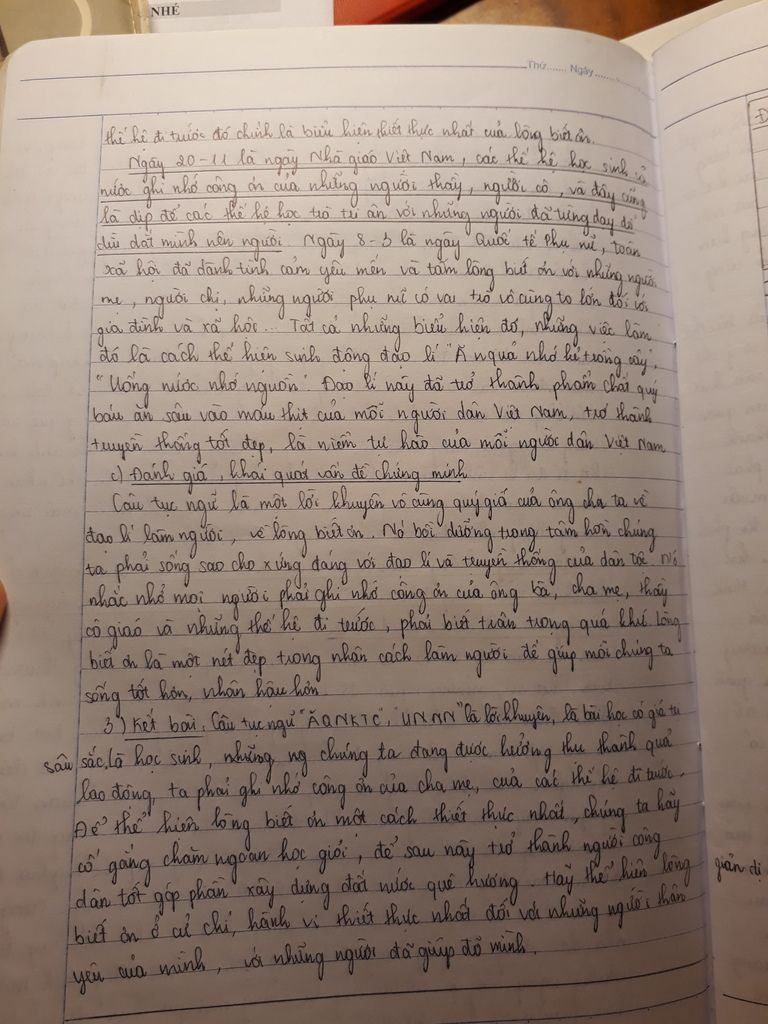 NHÉ
Thứ....... Ngày.......
thế hệ đi trước đó chính là biểu hiện thiết thực nhất của lòng biết ơn.
Ngày 20-11 là ngày Nhà giáo Việt Nam, các thế hệ học sinh cả
nước ghi nhớ công ơn của những người thầy, người cô, và đây cũng
là dịp để các thế hệ học trò tri ân với những người đã từng dạy dỗ
dìu dắt mình nên người. Ngày 8-3 là ngày Quốc tế Phụ nữ, toàn
xã hội đã dành tình cảm yêu mến và tấm lòng biết ơn với những người
mẹ, người chị, những người phụ nữ có vai trò vô cùng to lớn đối với
gia đình và xã hội... Tất cả những biểu hiện đó, những việc làm
đó là cách thể hiện sinh động đạo lí "Ăn quả nhớ kẻ trồng cây",
"Uống nước nhớ nguồn". Đạo lí này đã trở thành phẩm chất quý
báu ăn sâu vào máu thịt của mỗi người dân Việt Nam, trở thành
truyền thống tốt đẹp, là niềm tự hào của mỗi người dân Việt Nam
c) Đánh giá, khái quát vấn đề chứng minh
Câu tục ngữ là một lời khuyên vô cùng quý giá của ông cha ta về
đạo lí làm người, về lòng biết ơn. Nó bồi dưỡng trong tâm hồn chúng
ta phải sống sao cho xứng đáng với đạo lí và truyền thống của dân tộc. Nó
nhắc nhở mọi người phải ghi nhớ công ơn của ông bà, cha mẹ, thầy
cô giáo và những thế hệ đi trước, phải biết trân trọng quá khứ. Lòng
biết ơn là một nét đẹp trong nhân cách làm người để giúp mỗi chúng ta
sống tốt hơn, nhân hậu hơn
3) Kết bài: Câu tục ngữ "ĂQNKTC", "UNNN" là lời khuyên, là bài học có giá trị
sâu sắc. Là học sinh, những ng chúng ta đang được hưởng thụ thành quả
lao động, ta phải ghi nhớ công ơn của cha mẹ, của các thế hệ đi trước.
Để thể hiện lòng biết ơn một cách thiết thực nhất, chúng ta hãy
cố gắng chăm ngoan học giỏi, để sau này trở thành người công
dân tốt góp phần xây dựng đất nước quê hương. Hãy thể hiện lòng
giản dị
biết ơn ở cử chỉ, hành vi thiết thực nhất đối với những người thân
yêu của mình, với những người đã giúp đỡ mình.